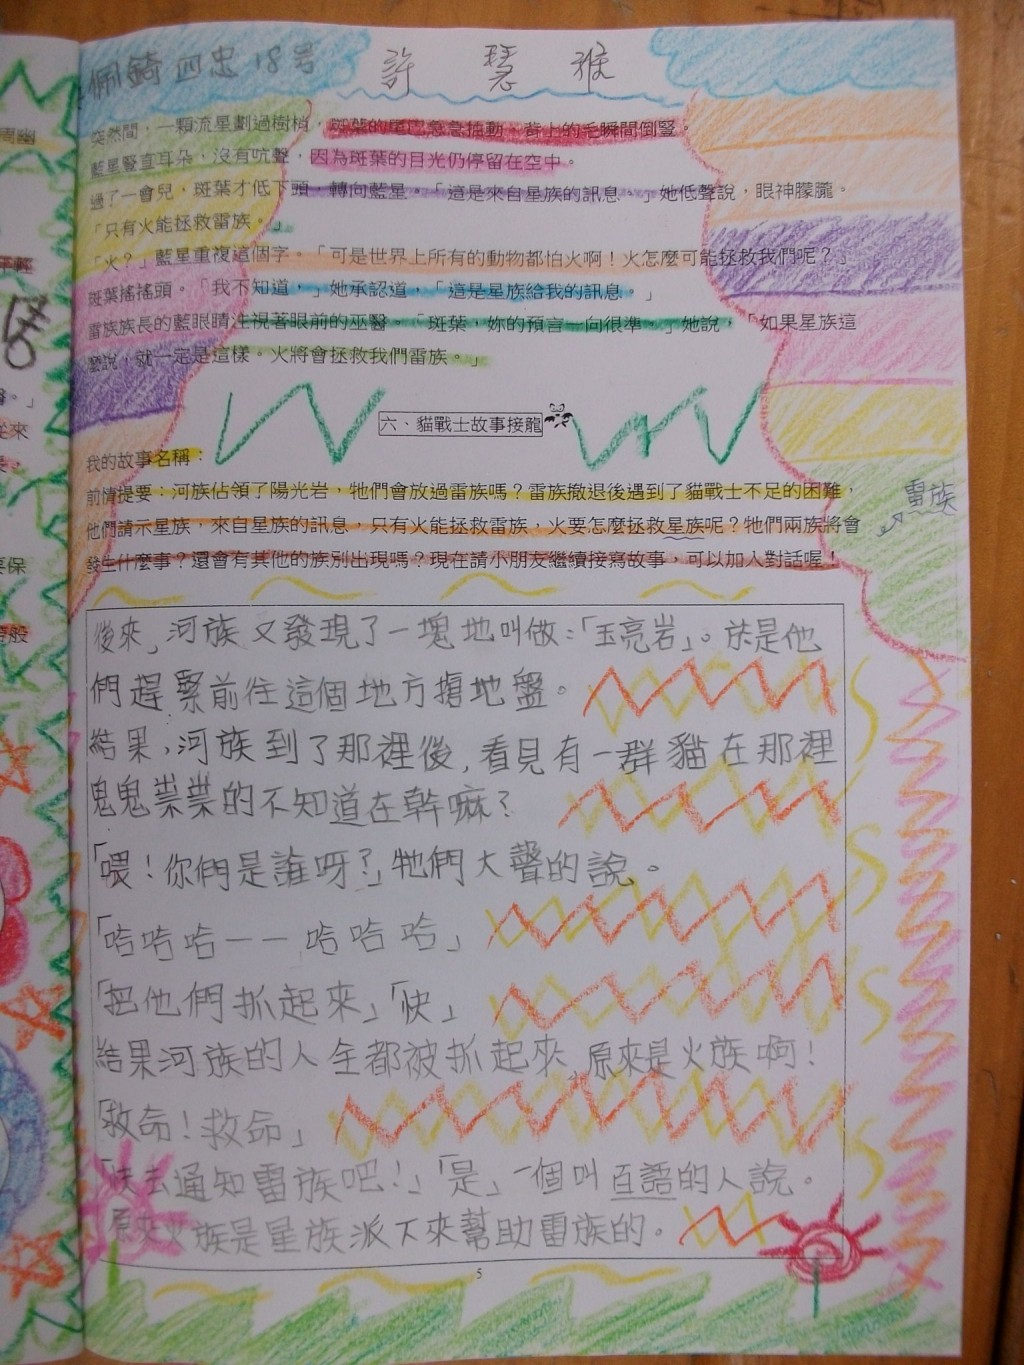 佩錡 四忠 18号 許 慧 猴
突然間，一顆流星劃過樹梢，斑葉的尾巴急急抽動，背上的毛瞬間倒豎。
藍星豎直耳朵，沒有吭聲，因為斑葉的目光仍停留在空中。
過了一會兒，斑葉才低下頭，轉向藍星。「這是來自星族的訊息。」她低聲說，眼神朦朧。
「只有火能拯救雷族。」
「火？」藍星重複這個字。「可是世界上所有的動物都怕火啊！火怎麼可能拯救我們呢？」
斑葉搖搖頭。「我不知道，」她承認道，「這是星族給我的訊息。」
雷族族長的藍眼睛注視著眼前的巫醫。「斑葉，妳的預言一向很準。」她說，「如果星族這
麼說，就一定是這樣。火將會拯救我們雷族。」
六、貓戰士故事接龍
我的故事名稱：
前情提要：河族佔領了陽光岩，牠們會放過雷族嗎？雷族撤退後遇到了貓戰士不足的困難，
他們請示星族，來自星族的訊息，只有火能拯救雷族，火要怎麼拯救星族呢？牠們兩族將會
雷族
發生什麼事？還會有其他的族別出現嗎？現在請小朋友繼續接寫故事，可以加入對話喔！
後來，河族又發現了一塊地叫做：「玉亮岩」。於是他
們趕緊前往這個地方搶地盤。
結果，河族到了那裡後，看見有一群貓在那裡
鬼鬼祟祟的不知道在幹嘛？
「喂！你們是誰呀？」牠們大聲的說。
「哈哈哈——哈哈哈」
「把他們抓起來」「快」
結果河族的人全都被抓起來，原來是火族啊！
「救命！救命」
「快去通知雷族吧！」「是」一個叫百語的人說。
原來火族是星族派下來幫助雷族的。
5